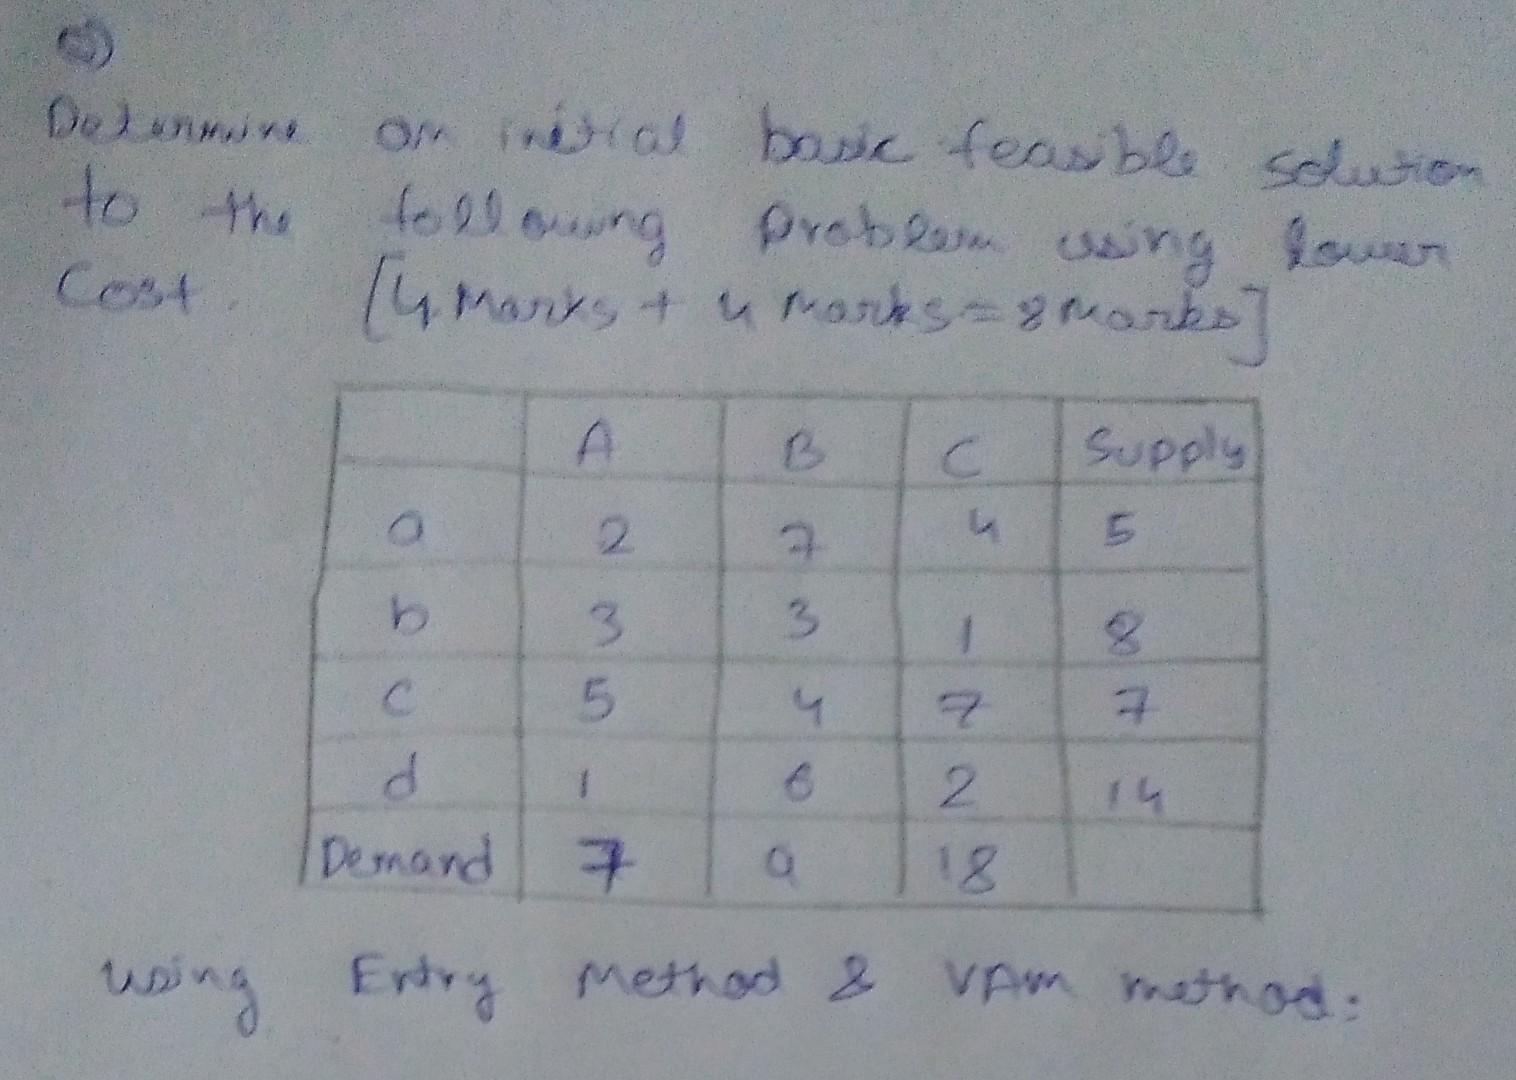 Determine an initial basic feasible solution
to the following problem using lower
Cost. [4 Marks + 4 Marks = 8 Marks]
A B C Supply
a 2 7 4 5
b 3 3 1 8
c 5 4 7 7
d 1 6 2 14
Demand 7 9 18
using Entry Method & VAM method: